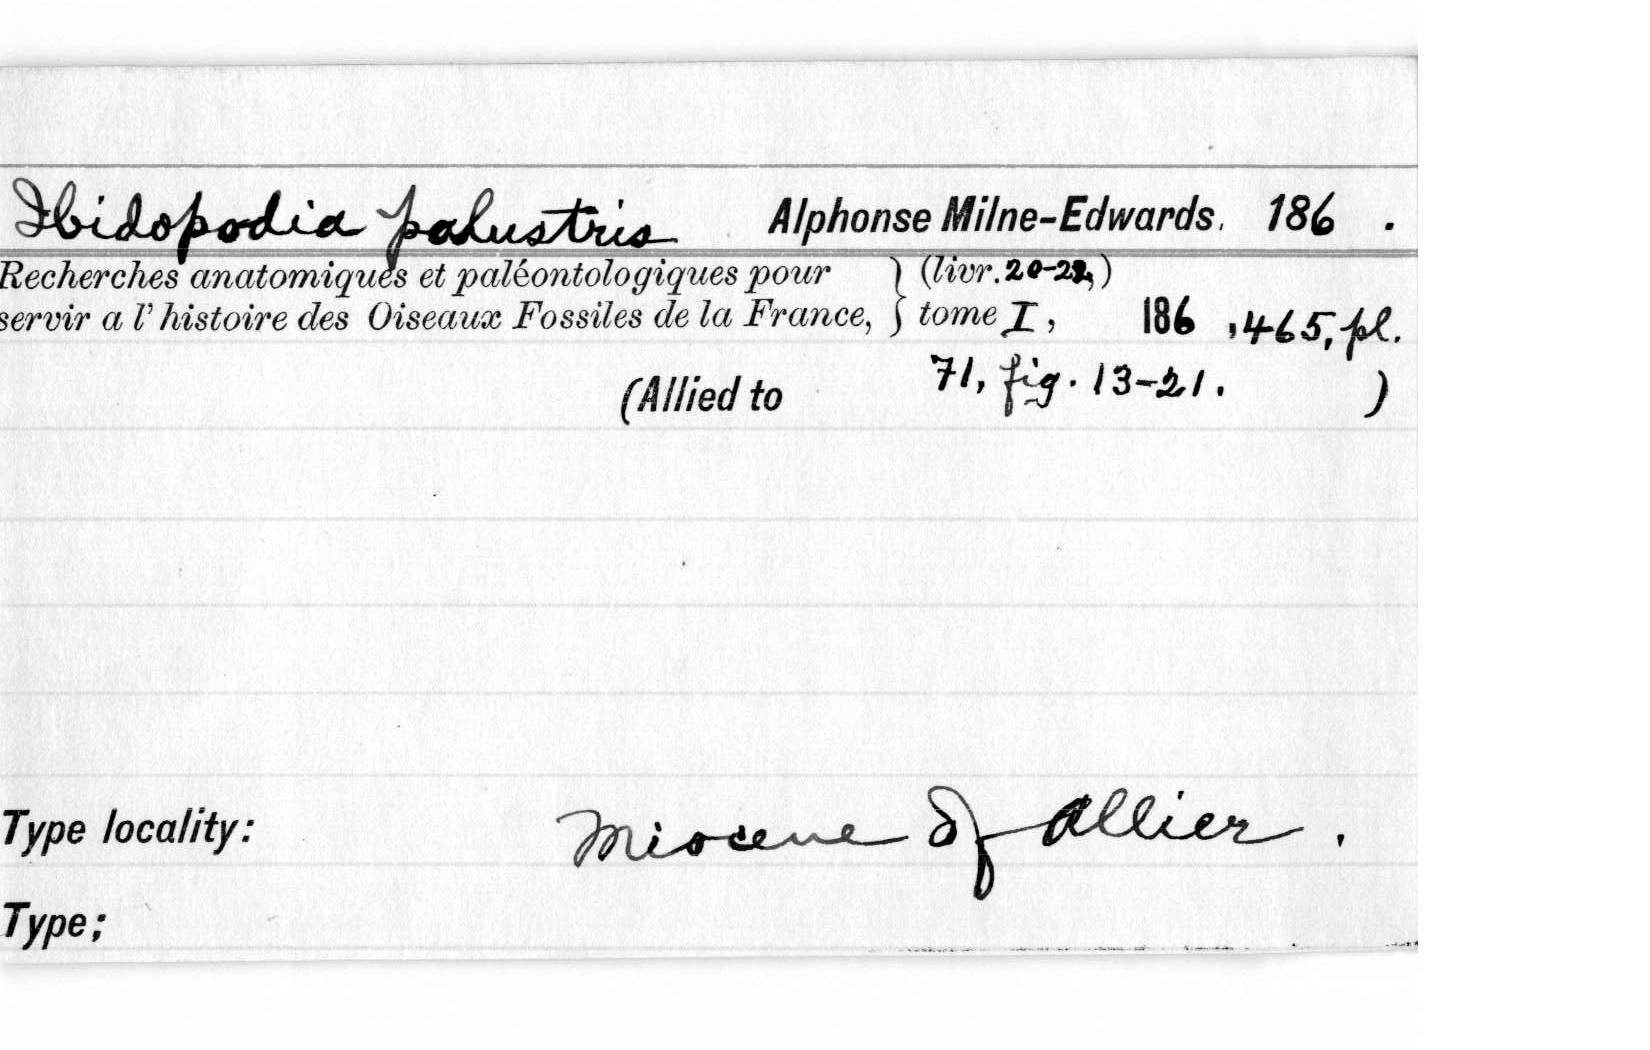 Ibidopodia palustris Alphonse Milne-Edwards. 186 .
Recherches anatomiques et paléontologiques pour } (livr. 20-22,)
servir a l'histoire des Oiseaux Fossiles de la France, } tome I, 186 , 465, pl.
(Allied to 71, fig. 13-21. )
Type locality: Miocene of Allier .
Type;